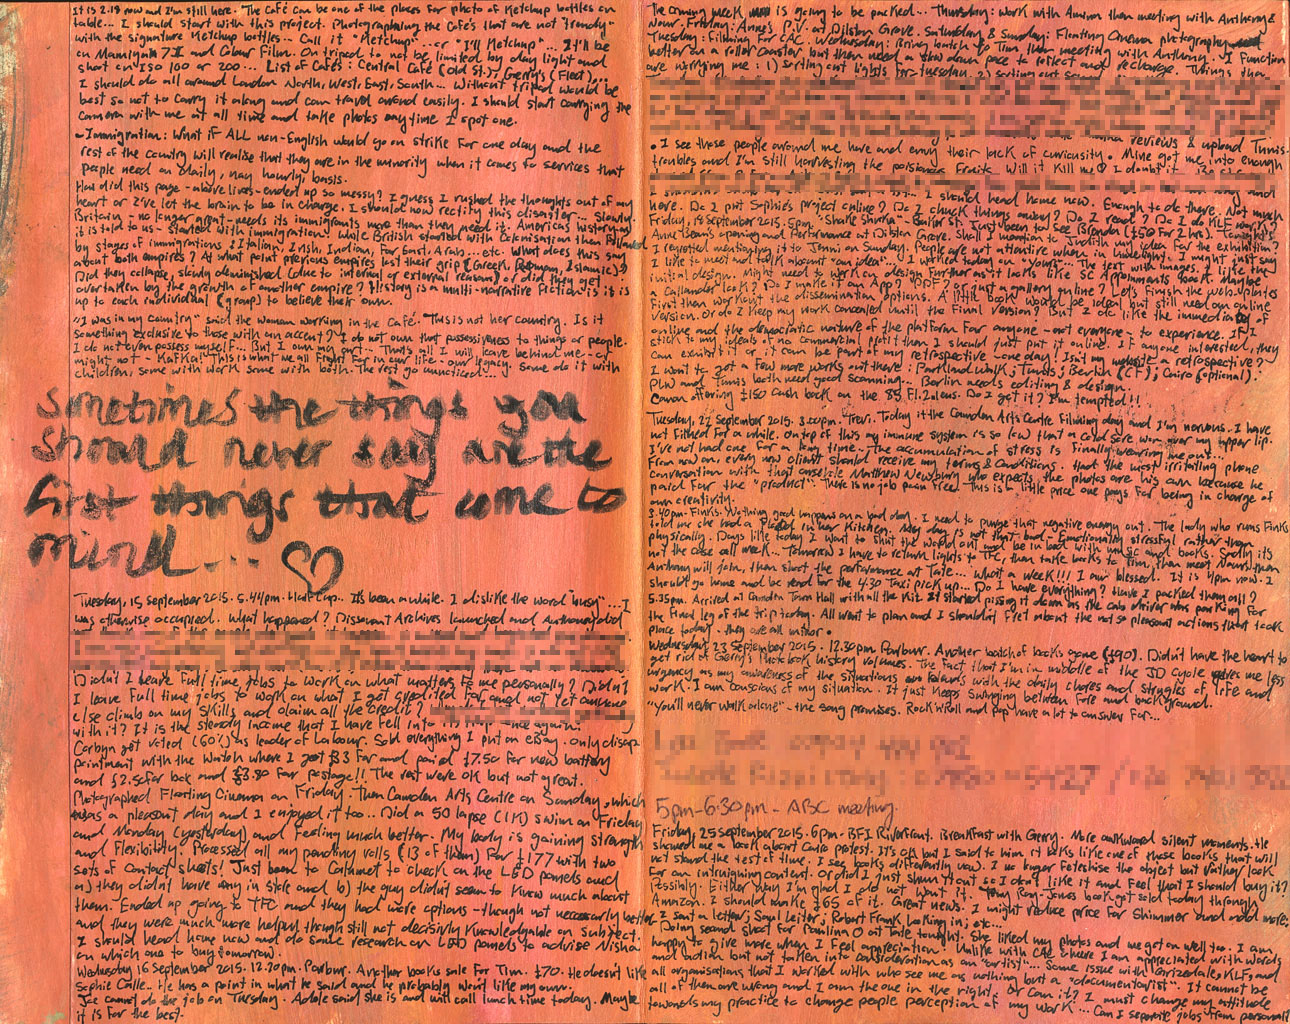 It is 2.18 now and I'm still here. The Café can be one of the places for photo of Ketchup bottles on
table... I should start with this project. Photographing the Cafés that are not "trendy"
with the signature Ketchup bottles... Call it "Ketchup"... or "I'll Ketchup"... I'll be
on Mamiya 7II and Colour Film. On tripod to not be limited by day light and
shot on ISO 100 or 200... List of Cafés: Central Café (Old St.), Gerry's (Fleet)...
I should do all around London North, West, East, South... Without tripod would be
best so not to carry it along and can travel around easily. I should start carrying the
camera with me at all time and take photos anytime I spot one.
- Immigration: What if ALL non-English would go on strike for one day and the
rest of the country will realise that they are in the minority when it comes to services that
people need on daily, nay hourly, basis.
How did this page - above lines - ended up so messy? I guess I rushed the thoughts out of my
heart or I've let the brain to be in charge. I should now rectify this disaster... Slowly.
Britain - no longer great - needs its immigrants more than they need it. America's history as
it is told to us - started with immigration! While British started with Colonisation then followed
by stages of immigrations: Italian, Irish, Indian, Far East, Arab... etc. What does this say
about both empires? At what point previous empires lost their grip (Greek, Roman, Islamic)?
Did they collapse, slowly deminished (due to internal or external reasons) or did they get
overtaken by the growth of another empire? History is a multi-narrative fiction is it is
up to each individual (group) to believe their own.
"I was in my country" said the woman working in the Café. This is not her country. Is it
something exclusive to those with an accent? I do not own that possessiveness to things or people.
I do not even possess myself... But I own my art - That's all I will leave behind me - or
might not - Kafka! This is what we all fight for in our life - our legacy. Some do it with
children, some with work some with both. The rest go unnoticed...
Sometimes the things you
should never say are the
first things that come to
mind...
Tuesday, 15 September 2015. 5.44pm. Half Cup... It's been a while. I dislike the word "busy"... I
was otherwise occupied. What happened? Dissonant Archives launched and Anthony did
Didn't I leave full time jobs to work on what matters to me personally? Didn't
I leave full time jobs to work on what I get credited for and not let anyone
else climb on my skills and claim all the credit?
with it? It is the steady income that I have fell into its trap - once again.
Corbyn got voted (60%) as leader of Labour. Sold everything I put on eBay. only disap-
pointment with the Watch where I got £33 for and paid £7.50 for new battery
and £2.50 for box and £3.90 for postage!! The rest were OK but not great.
Photographed Floating Cinema on Friday. Then Camden Arts Centre on Sunday, which
was a pleasant day and I enjoyed it too.. Did a 50 lapse (1M) swim on Friday
and Monday (yesterday) and feeling much better. My body is gaining strength
and flexibility. Processed all my pending rolls (13 of them) for £177 with two
sets of contact sheets! Just been to Calumet to check on the LED panels and
a) they didn't have any in store and b) the guy didn't seem to know much about
them. Ended up going to TFC and they had more options - though not necessarly better
and they were much more helpful though still not decisivly Knowledgable on subject.
I should head home now and do some research on LED panels to advise Nisha
on which one to buy tomorrow.
Wednesday 16 September 2015. 12.70pm. Parbur. Another books sale for Tim. £70. He doesn't like
Sophie Calle.. He has a point in what he said and he probably won't like my own.
Joe cannot do the job on Tuesday. Adele said she is and will call lunch time today. Maybe
it is for the best.
The coming week is going to be packed... Thursday: work with Amiran than meeting with Anthony &
Nour. Friday: Anne's P.V. at Dilston Grove. Saturday & Sunday: Floating Cinema photography
Tuesday: Filming for CAC. Wednesday: Bring batch to Tim then meeting with Anthony. I function
better on a roller coaster but then need a slow down pace to reflect and recharge. Things that
are worrying me: 1) Sorting out lights for tuesday. 2) Sorting out
reviews & upload Tunis.
• I see those people around me here and envy their lack of curiosity. Mine got me into enough
troubles and I'm still harvesting the poisonous fruits. Will it kill me? I doubt it.
I should head home now. Enough to do there. Not much
here. Do I put Sophie's project online? Do I chuck things away? Do I read? Do I do KLF work?
Friday, 18 September 2015. 5pm. "Shake Shuka" - Baker St. Just been to see Brandon (£50 for 2 hrs). Tonight's
Anne Bean's opening and performance at Dilston Grove. Shall I mention to Judith my idea for the exhibition?
I regretted mentioning it to Jenni on Sunday. People are not attentive when in limelight. I might just say
I like to meet and talk about "an idea"... I worked today on "yours". The text with images. I like the
initial design. Might need to work on design further as it looks like SC Pigments book. Maybe
a Callander look? Do I make it an App? PDF? or just a gallery online? Let's finish the web-photos
first then work out the dissemination options. A little book would be ideal but still need an online
version. Or do I keep my work concealed until the final version? But I do like the immediate of
online and the democratic nature of the platform for anyone - not everyone - to experience. If I
stick to my ideals of no commercial profit then I should just put it online. If anyone interested, they
can exhibit it or it can be part of my retrospective - one day! Isn't my website a retrospective?
I want to get a few more works out there: Portland Walk; Tunis; Berlin (CF); Cairo (optional).
PLW and Tunis both need good scanning... Berlin needs editing & design.
Canon offering £150 cash back on the 85 F1.2 lens. Do I get it? I'm tempted!!
Tuesday, 22 September 2015. 3.00pm. Trevi. Today it the Camden Arts Centre filming day and I'm nervous. I have
not filmed for a while. On top of this my immune system is so low that a cold sore won over my upper lip.
I've not had one for a long time. The accumulation of stress is finally wearing me out...
From now on every new client should receive my terms & conditions. Had the most irritating phone
conversation with that arsehole Matthew Newbury who expects the photos are his own because he
paid for the "product". There is no job pain free. This is a little price one pays for being in charge of
own creativity.
3.40pm. Finks. Nothing good happens on a bad day. I need to purge that negative energy out. The lady who runs Finks
told me she had a flood in her kitchen. My day is not that bad - Emotionally stressful rather than
physically. Days like today I want to shut the world out and be in bed with music and books. Sadly its
not the case all week... Tomorrow I have to return lights to TFC, then take books to Tim, then meet Nour. Then
Anthony will join, then shoot the performance at Tate... What a week!!! I am blessed. It is 4pm now. I
should go home and be ready for the 4.30 Taxi pick up. Do I have everything? Have I packed them all?
5.35pm. Arrived at Camden Town Hall with all the kit. It started pissing it down as the cab driver was parking for
the final leg of the trip today. All went to plan and I shouldn't fret about the not so pleasant actions that took
place today - they are all minor.
Wednesday 23 September 2015. 12.30pm Parbur. Another batch of books gone (£90). Didn't have the heart to
get rid of Gerry's Photobook history volumes. The fact that I'm in middle of the 3D cycle gives me less
urgency as my awareness of the situations balances with the daily chores and strugles of life and
work. I am conscious of my situation. It just keeps swinging between fore and background.
"You'll never walk alone" - the song promises. Rock'n'Roll and Pop have a lot to answer for...
5pm-6:30pm - ABC meeting.
Friday, 25 September 2015. 6pm. BFI Riverfront. Breakfast with Gerry. More awkward silent moments. He
showed me a book about Cairo protest. It's OK but I said to him it looks like one of those books that will
not stand the test of time. I see books differently now. I no longer fetishise the object but rather look
for an intruiging content. Or did I just shun it out so I don't like it and feel that I should buy it?
Possibly. Either way I'm glad I do not want it. Tony Ray-Jones book got sold today through
Amazon. I should make £65 of it. Great news. I might reduce price for Shimmer and add more.
I sent a letter; Saul Leiter; Robert Frank Looking in; etc...
Doing second shoot for Paulina O at Tate tonight. She liked my photos and we got on well too. I am
happy to give more when I feel appreciation. Unlike with CAC where I am appreciated with words
and action but not taken into consideration as an "artist"... Same issue with Grizedale, KLF, and
all organisations that I worked with who see me as nothing but a "documentarist". It cannot be
all of them are wrong and I am the one in the right. Or can it? I must change my attitude
towards my practice to change people perception of my work... Can I separate jobs from personal